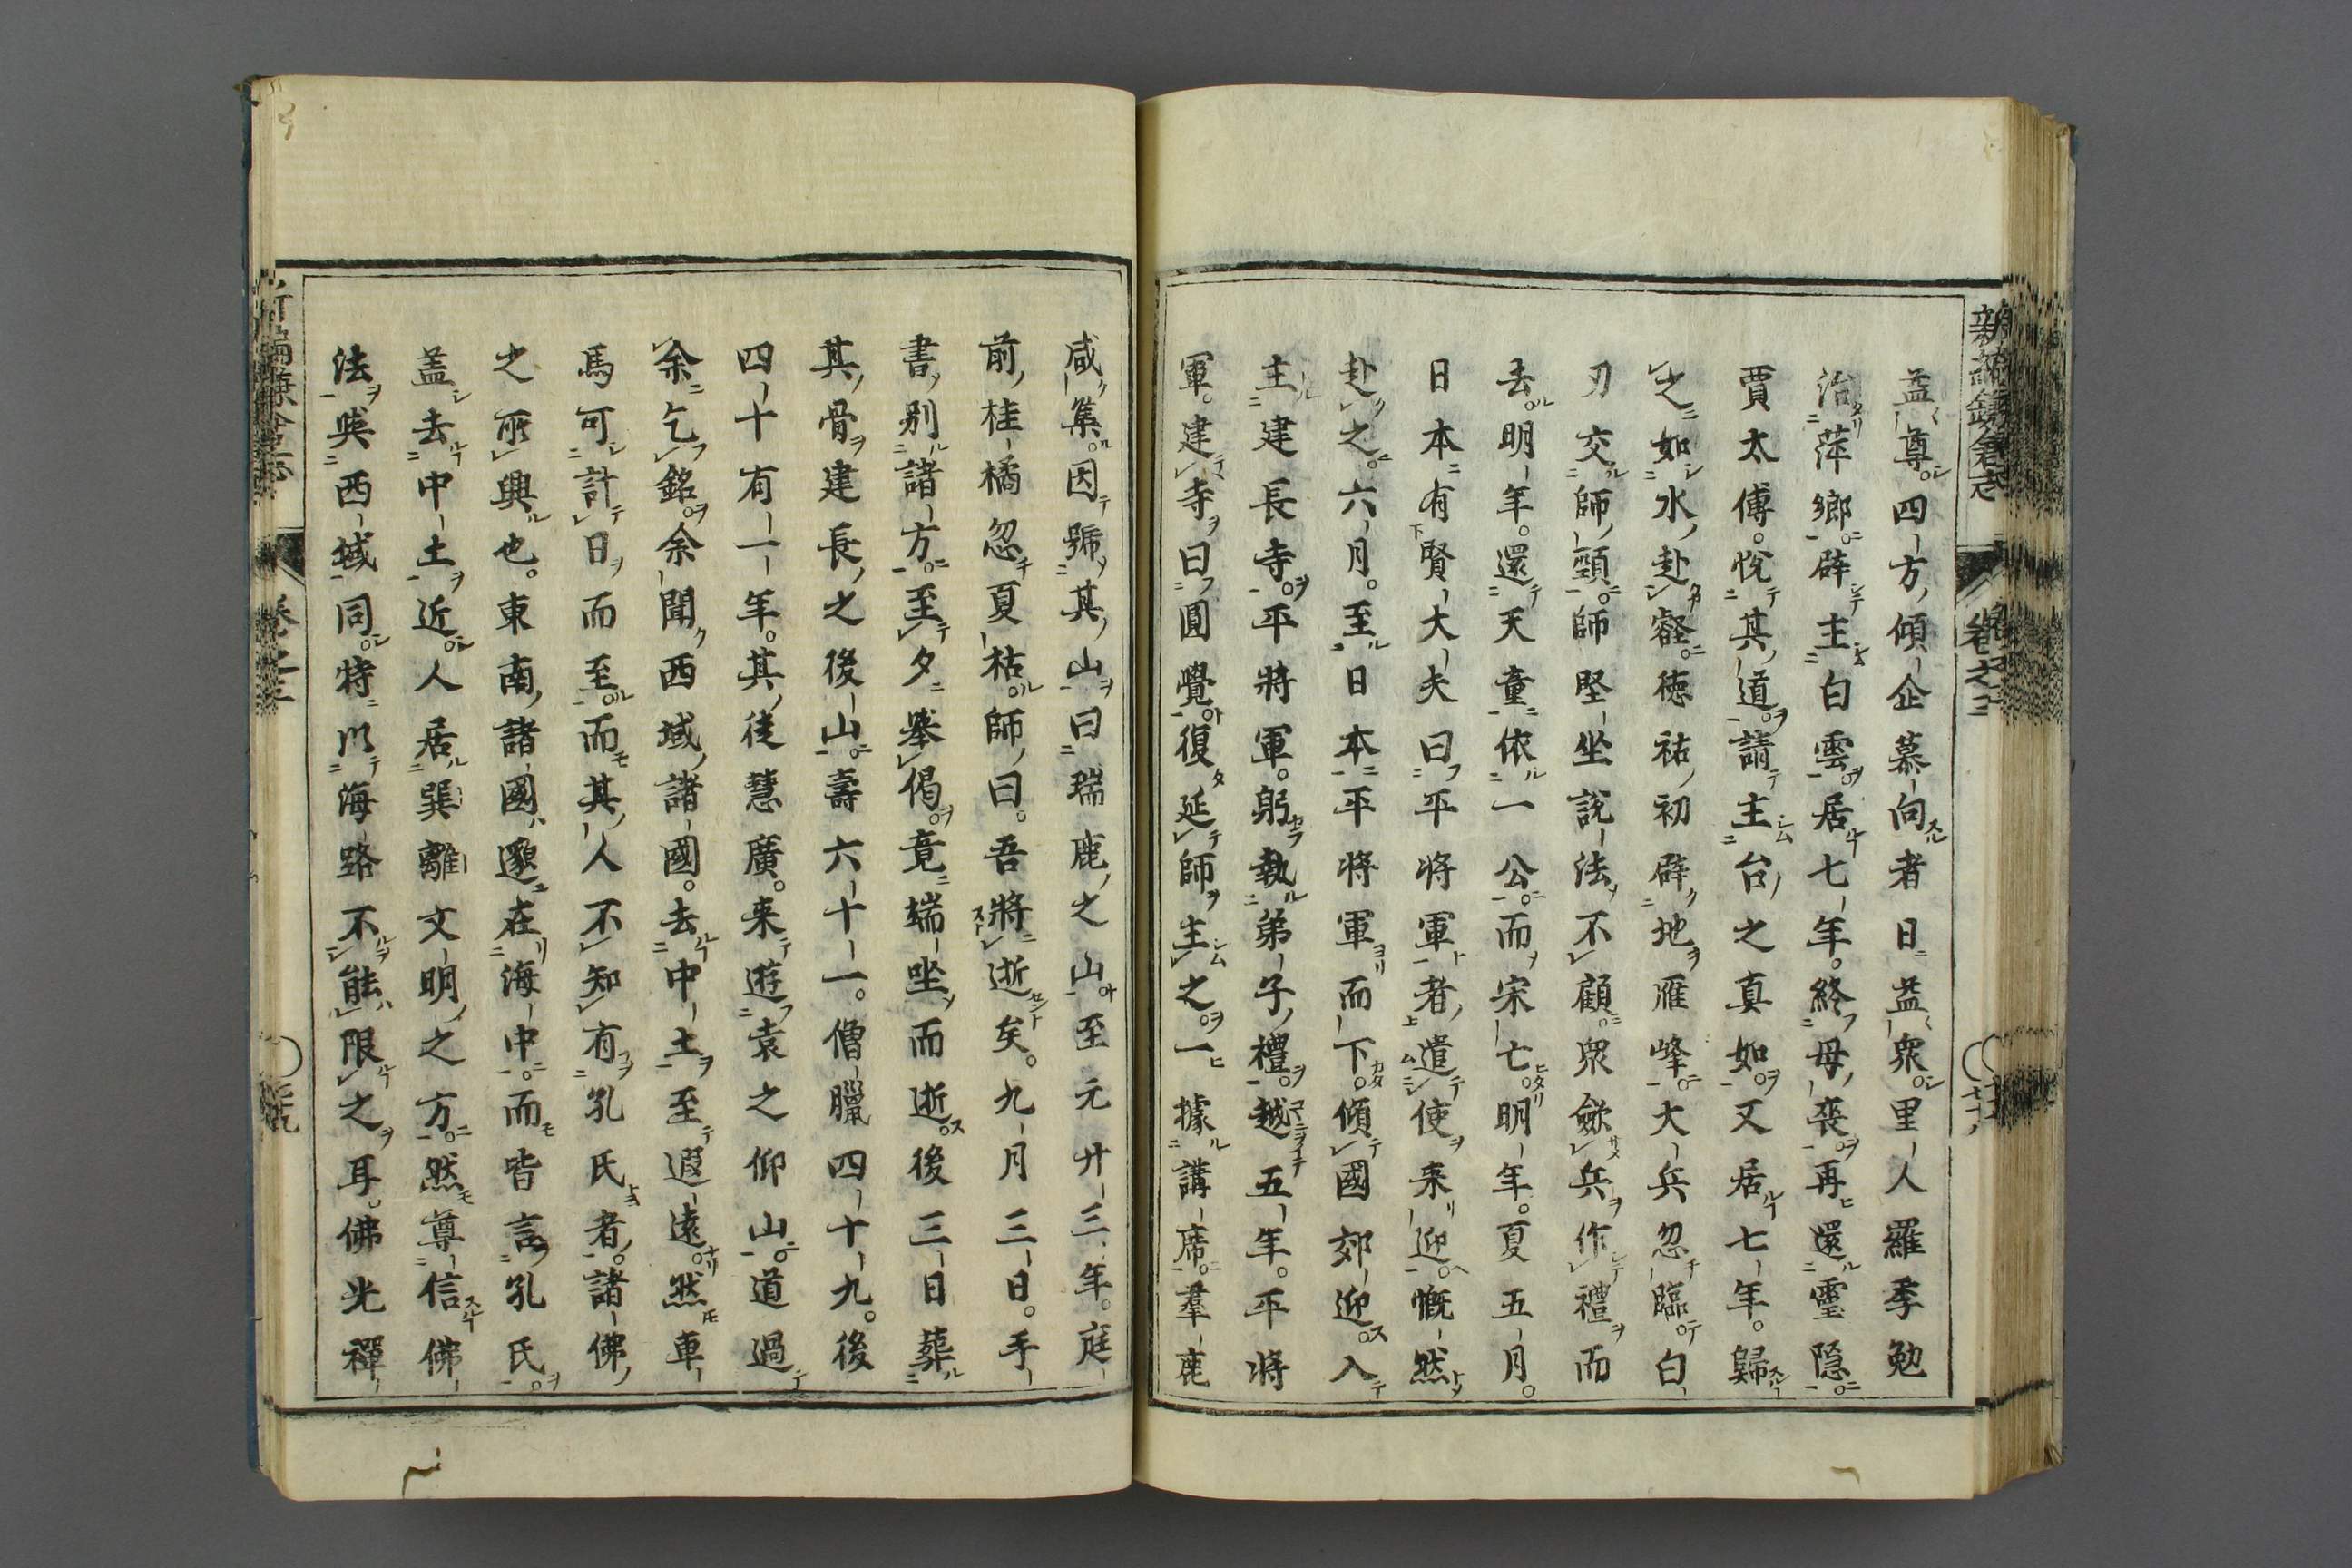 新編鎌倉志
卷之三
益尊四方傾企慕向者日益衆里人羅季勉
治萍鄉辟主白雲居七年終母喪再還靈隠
賈太傅悅其道請主台之真如又居七年歸
之如水赴窰德祐初辟地雁峰大兵忽臨白
刃交師頸師堅坐說法不顧衆斂兵作禮而
去明年還天童依一公而宋亡明年夏五月
日本有賢大夫曰平將軍者遣使来迎慨然
赴之六月至日本平将軍而下傾國郊迎入
主建長寺平將軍躬執弟子禮越五年平將
軍建寺曰圓覺復延師主之一據講席羣鹿
咸集因號其山曰瑞鹿之山至元廾三年庭
前桂橘忽夏枯師曰吾將逝矣九月三日手
書别諸方至夕舉偈竟端坐而逝後三日葬
其骨建長之後山壽六十一僧臘四十九後
四十有一年其徒慧廣来遊袁之仰山道過
余乞銘余聞西域諸國去中土至遐遠然車
馬可計日而至而其人不知有孔氏者諸佛
之所興也東南諸國邈在海中而皆言孔氏
盖去中土近人居巽離文明之方然尊信佛
法與西域同特以海路不能限之耳佛光禪
新編鎌倉志
卷之三